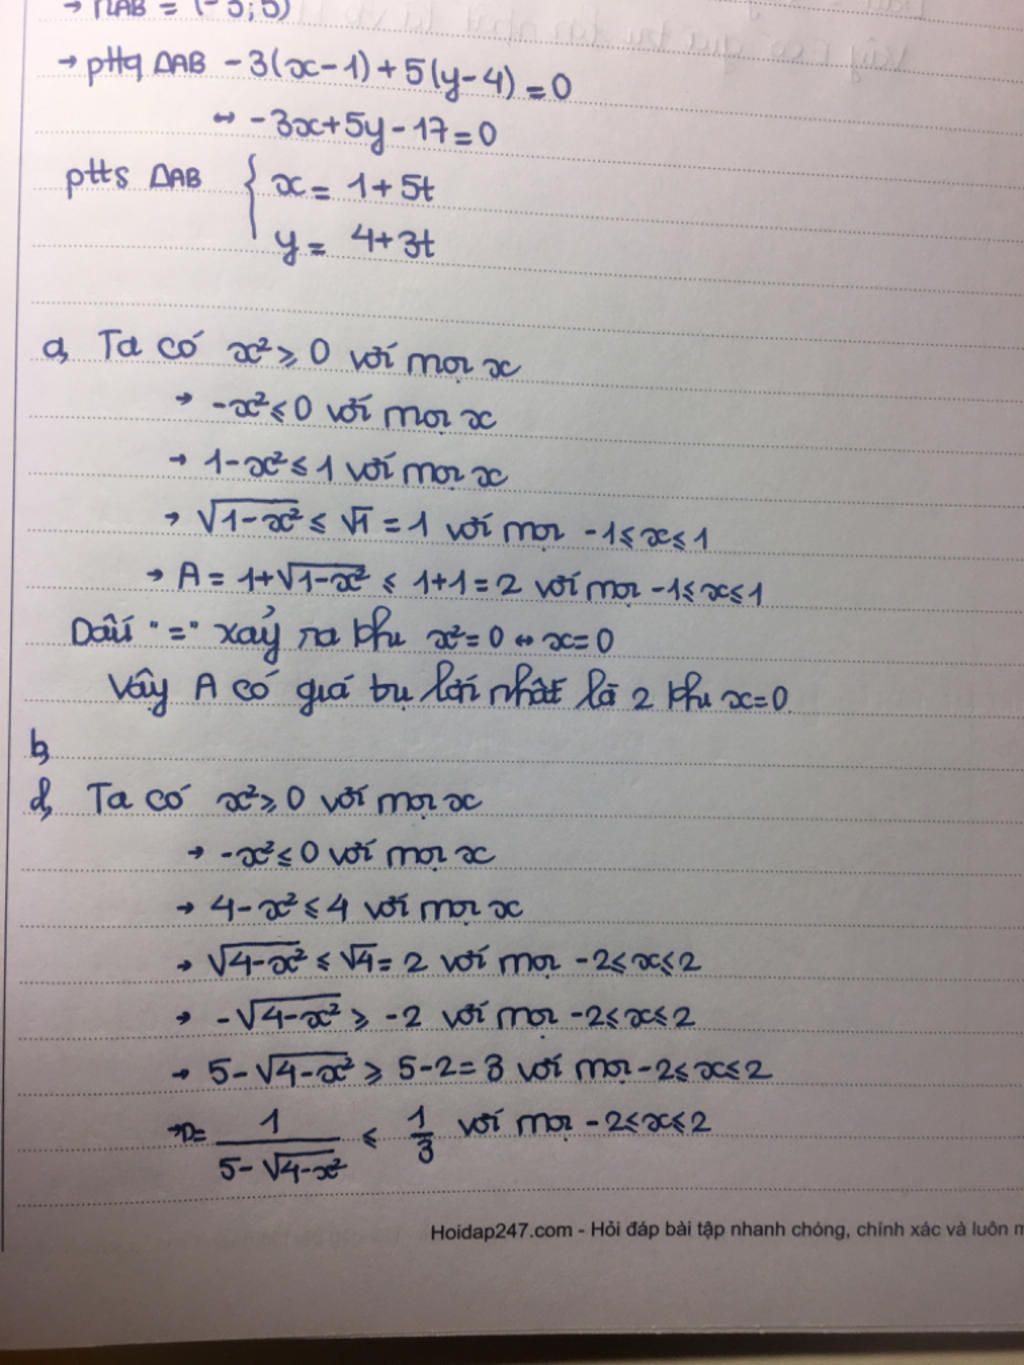 → nAB = (-3;5)
→ pttq ΔAB -3(x-1)+5(y-4)=0
↔ -3x+5y-17=0
ptts ΔAB { x = 1+5t
y = 4+3t
a, Ta có x² ⩾ 0 với mọi x
→ -x² ⩽ 0 với mọi x
→ 1-x² ⩽ 1 với mọi x
→ √(1-x²) ⩽ √1 = 1 với mọi -1⩽x⩽1
→ A = 1+√(1-x²) ⩽ 1+1=2 với mọi -1⩽x⩽1
Dấu "=" xảy ra khi x²=0 ↔ x=0
Vậy A có giá trị lớn nhất là 2 khi x=0
b,
d, Ta có x² ⩾ 0 với mọi x
→ -x² ⩽ 0 với mọi x
→ 4-x² ⩽ 4 với mọi x
→ √(4-x²) ⩽ √4 = 2 với mọi -2⩽x⩽2
→ -√(4-x²) ⩾ -2 với mọi -2⩽x⩽2
→ 5-√(4-x²) ⩾ 5-2=3 với mọi -2⩽x⩽2
→D= 1/(5-√(4-x²)) ⩽ 1/3 với mọi -2⩽x⩽2
Hoidap247.com - Hỏi đáp bài tập nhanh chóng, chính xác và luôn m